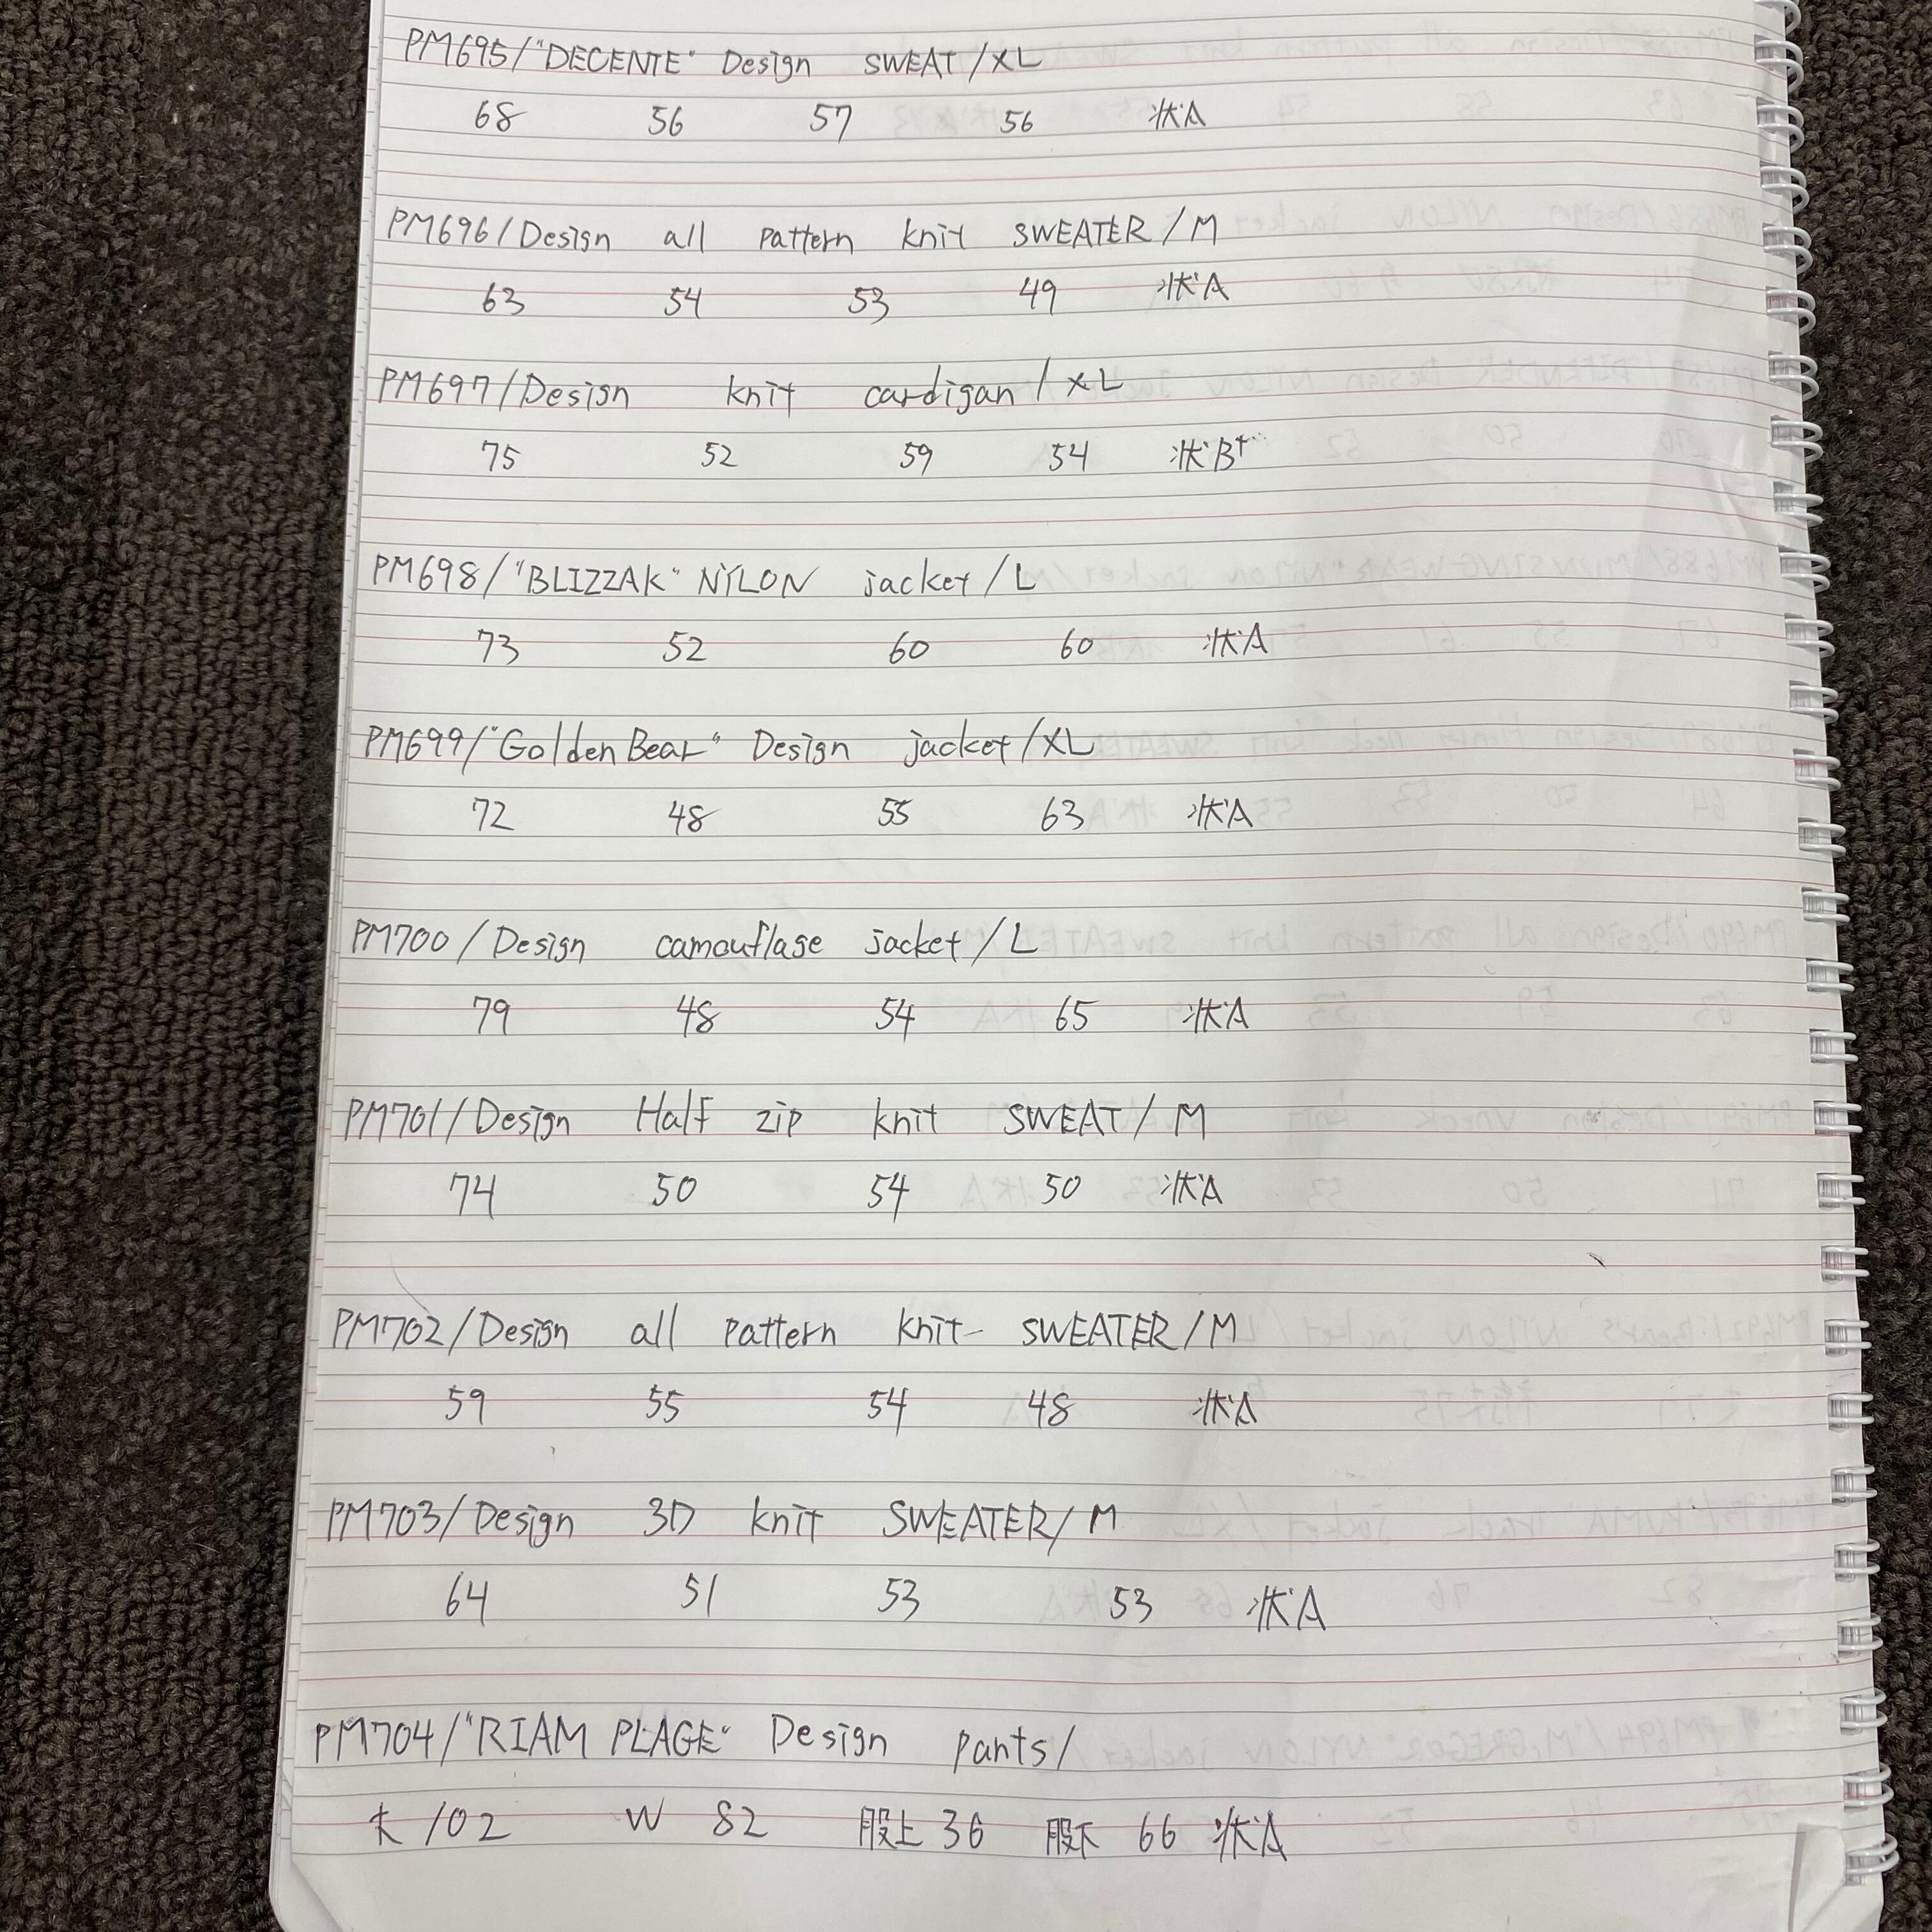 PM695/"DECENTE" Design SWEAT/XL
68 56 57 56 状A
PM696/Design all pattern knit SWEATER/M
63 54 53 49 状A
PM697/Design knit cardigan/XL
75 52 59 54 状B+
PM698/"BLIZZAK" NYLON jacket/L
73 52 60 60 状A
PM699/"Golden Bear" Design jacket/XL
72 48 55 63 状A
PM700/Design camouflage jacket/L
79 48 54 65 状A
PM701/Design Half zip knit SWEAT/M
74 50 54 50 状A
PM702/Design all pattern knit SWEATER/M
59 55 54 48 状A
PM703/Design 3D knit SWEATER/M
64 51 53 53 状A
PM704/"RIAM PLAGE" Design pants/
102 W 82 股上36 股下 66 状A